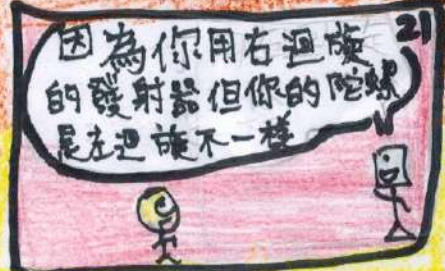 因為你用右迴旋
的發射器但你的陀螺
是左迴旋不一樣
21